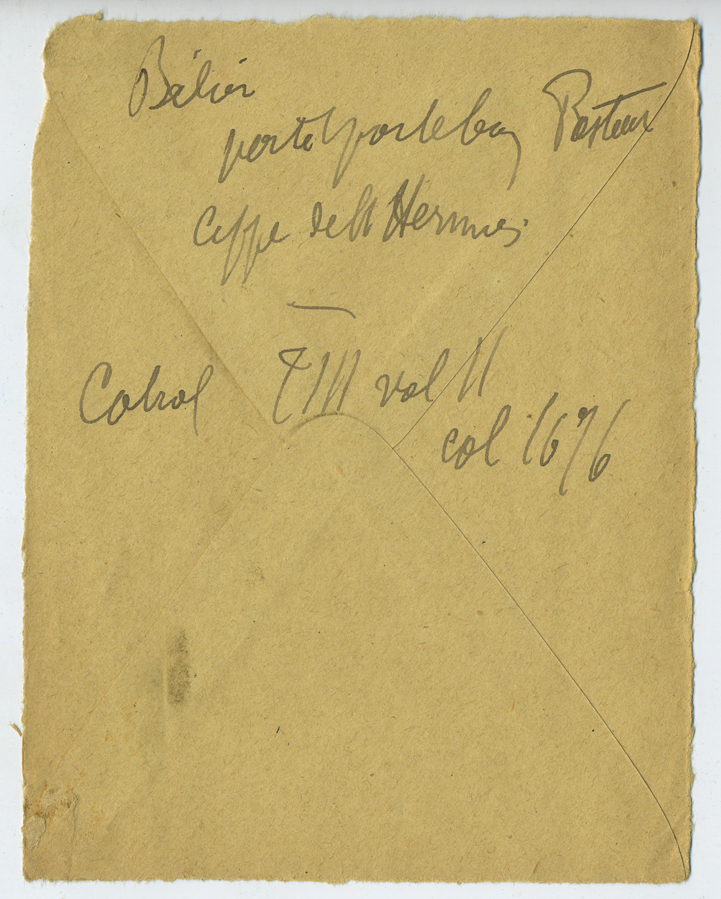 Bélier
porté par le bon Pasteur
cippe de St Hermes
Cabrol T III vol II
col 1676